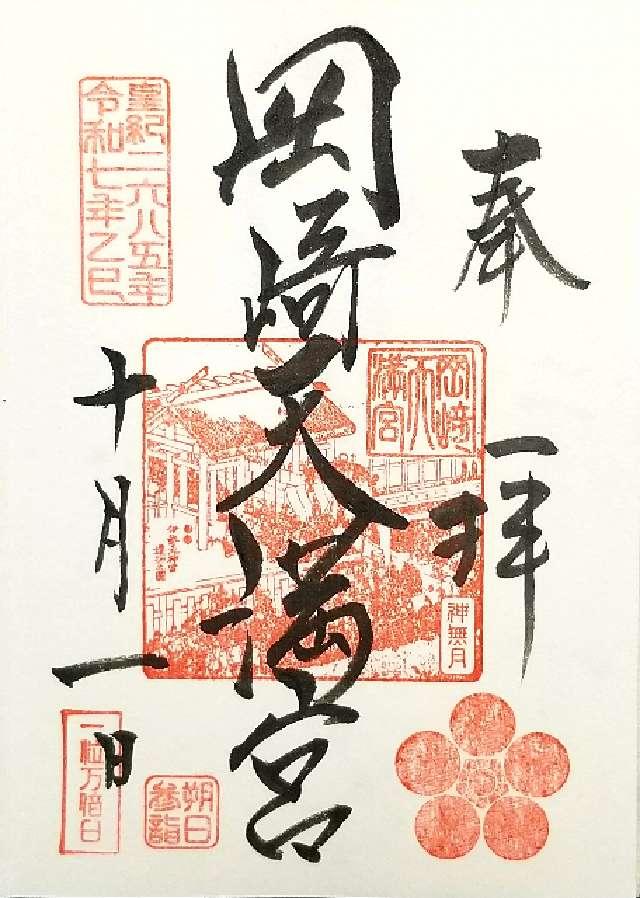 奉拝
岡崎天満宮
皇紀二六八五年
令和七年乙巳
十月一日
岡崎
天
満宮
神無月
朔日
参詣
一粒万倍日